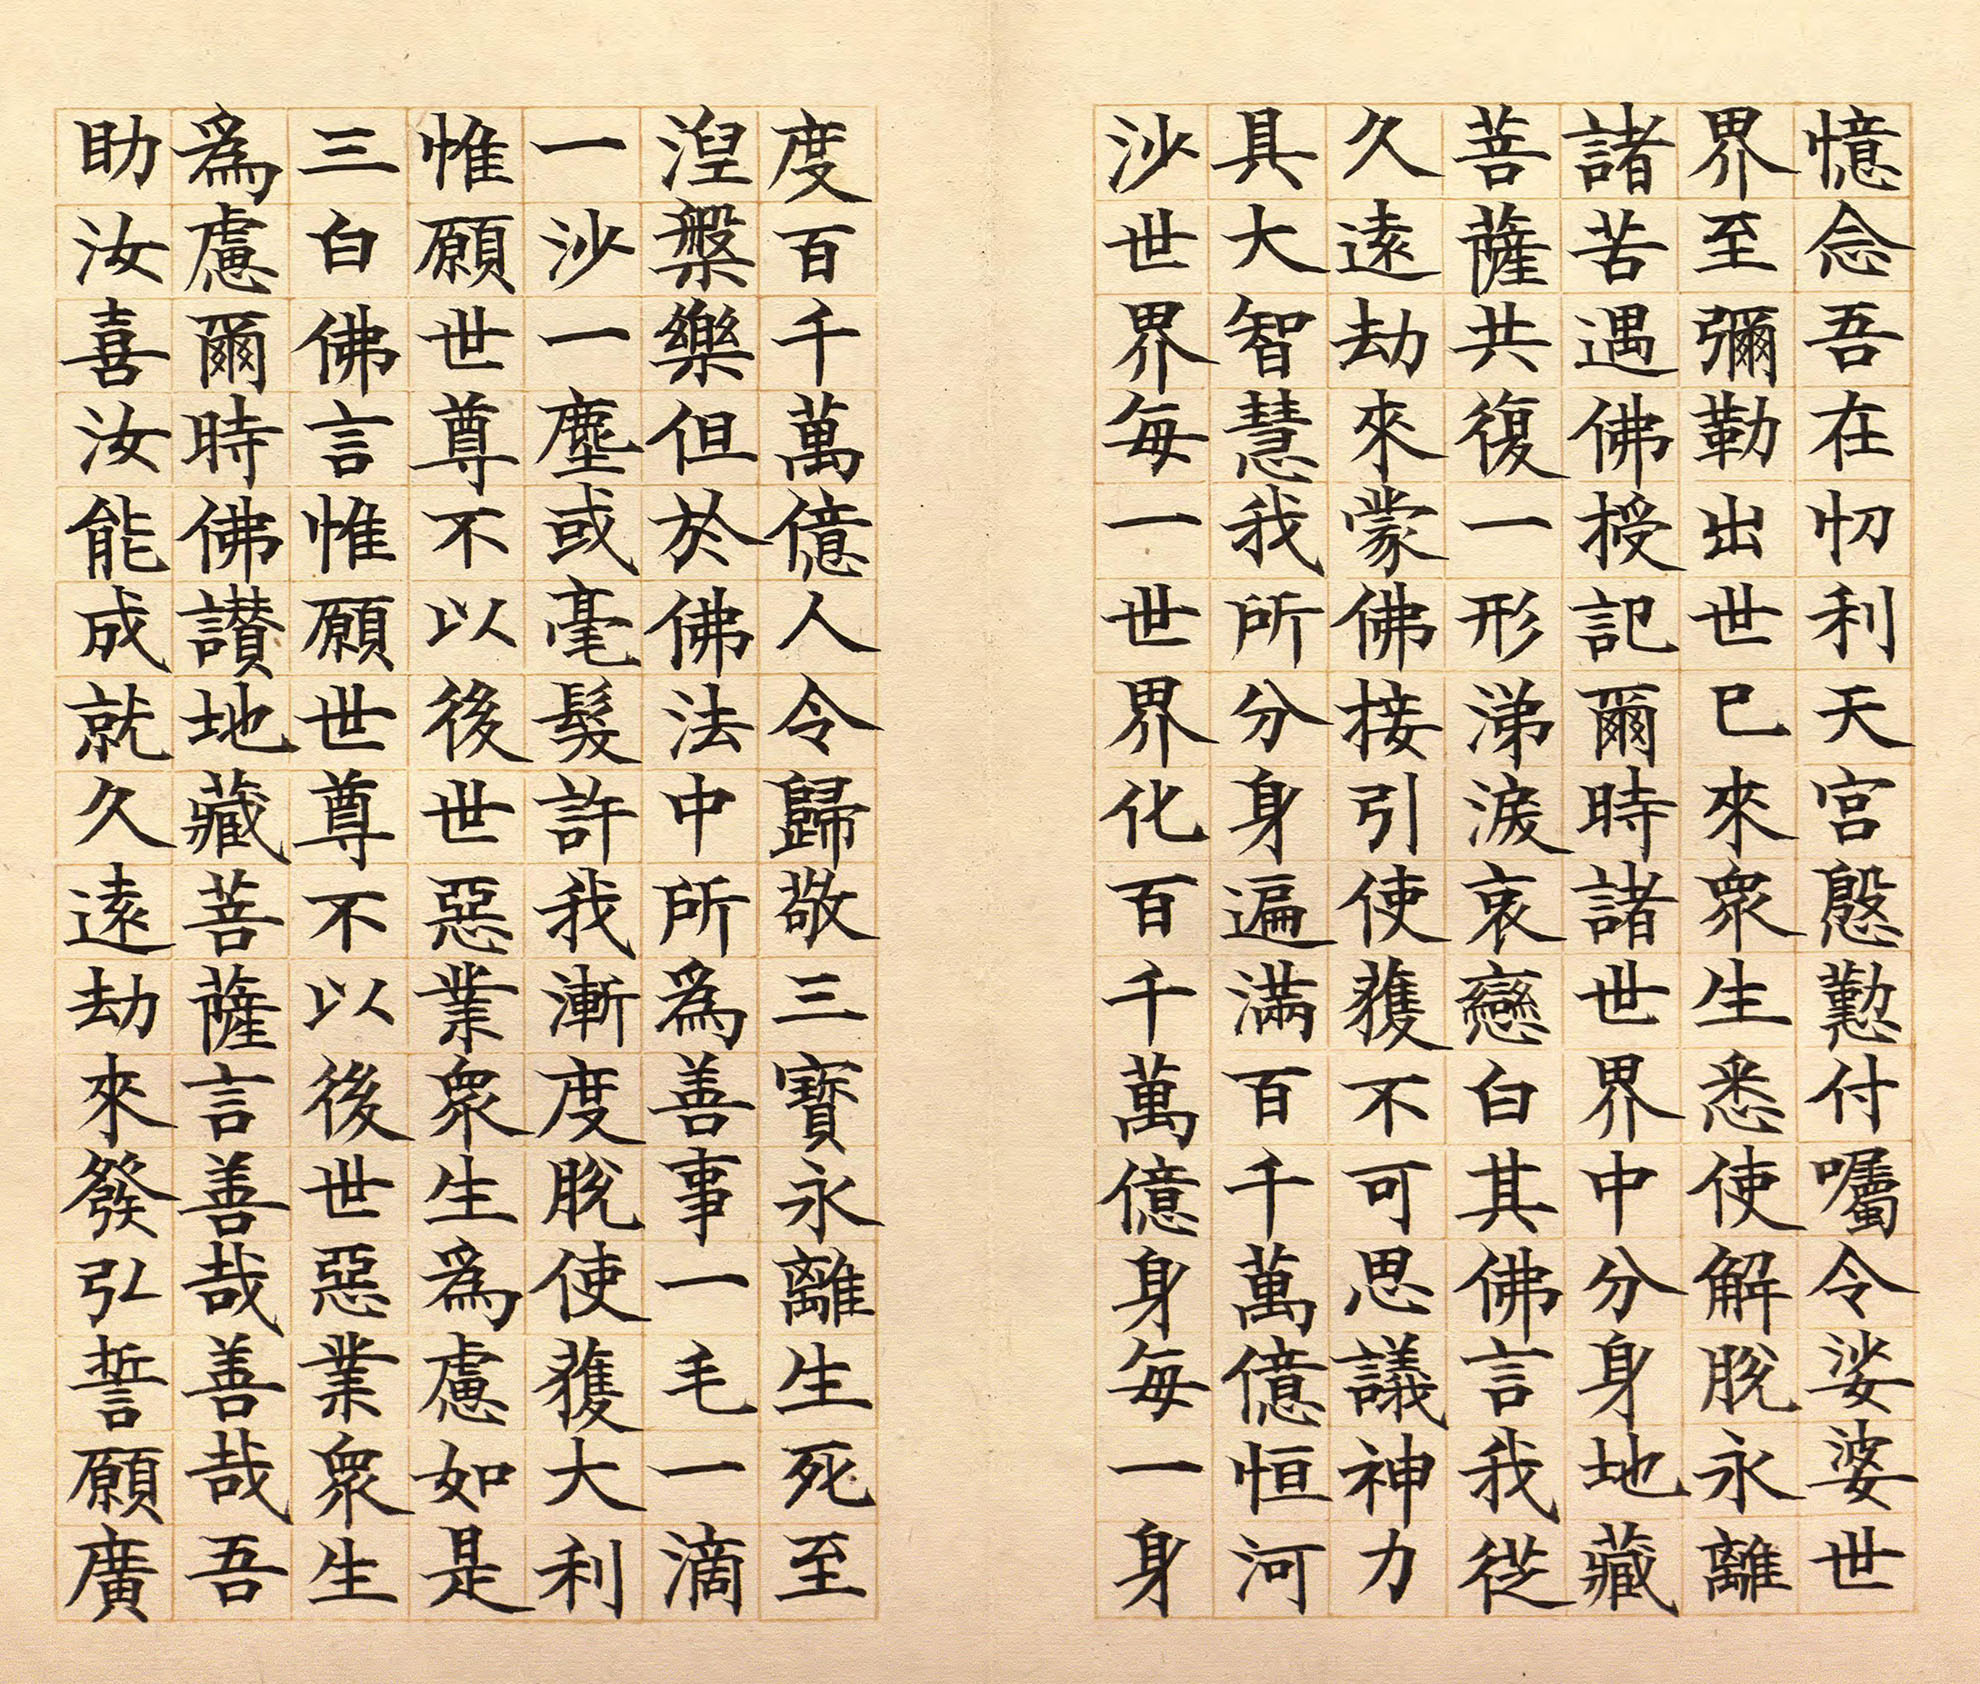 憶念吾在忉利天宮慇懃付囑令娑婆世
界至彌勒出世已來眾生悉使解脫永離
諸苦遇佛授記爾時諸世界中分身地藏
菩薩共復一形涕淚哀戀白其佛言我從
久遠劫來蒙佛接引使獲不可思議神力
具大智慧我所分身遍滿百千萬億恒河
沙世界每一世界化百千萬億身每一身
度百千萬億人令歸敬三寶永離生死至
涅槃樂但於佛法中所為善事一毛一滴
一沙一塵或毫髮許我漸度脫使獲大利
惟願世尊不以後世惡業眾生為慮如是
三白佛言惟願世尊不以後世惡業眾生
為慮爾時佛讚地藏菩薩言善哉善哉吾
助汝喜汝能成就久遠劫來發弘誓願廣